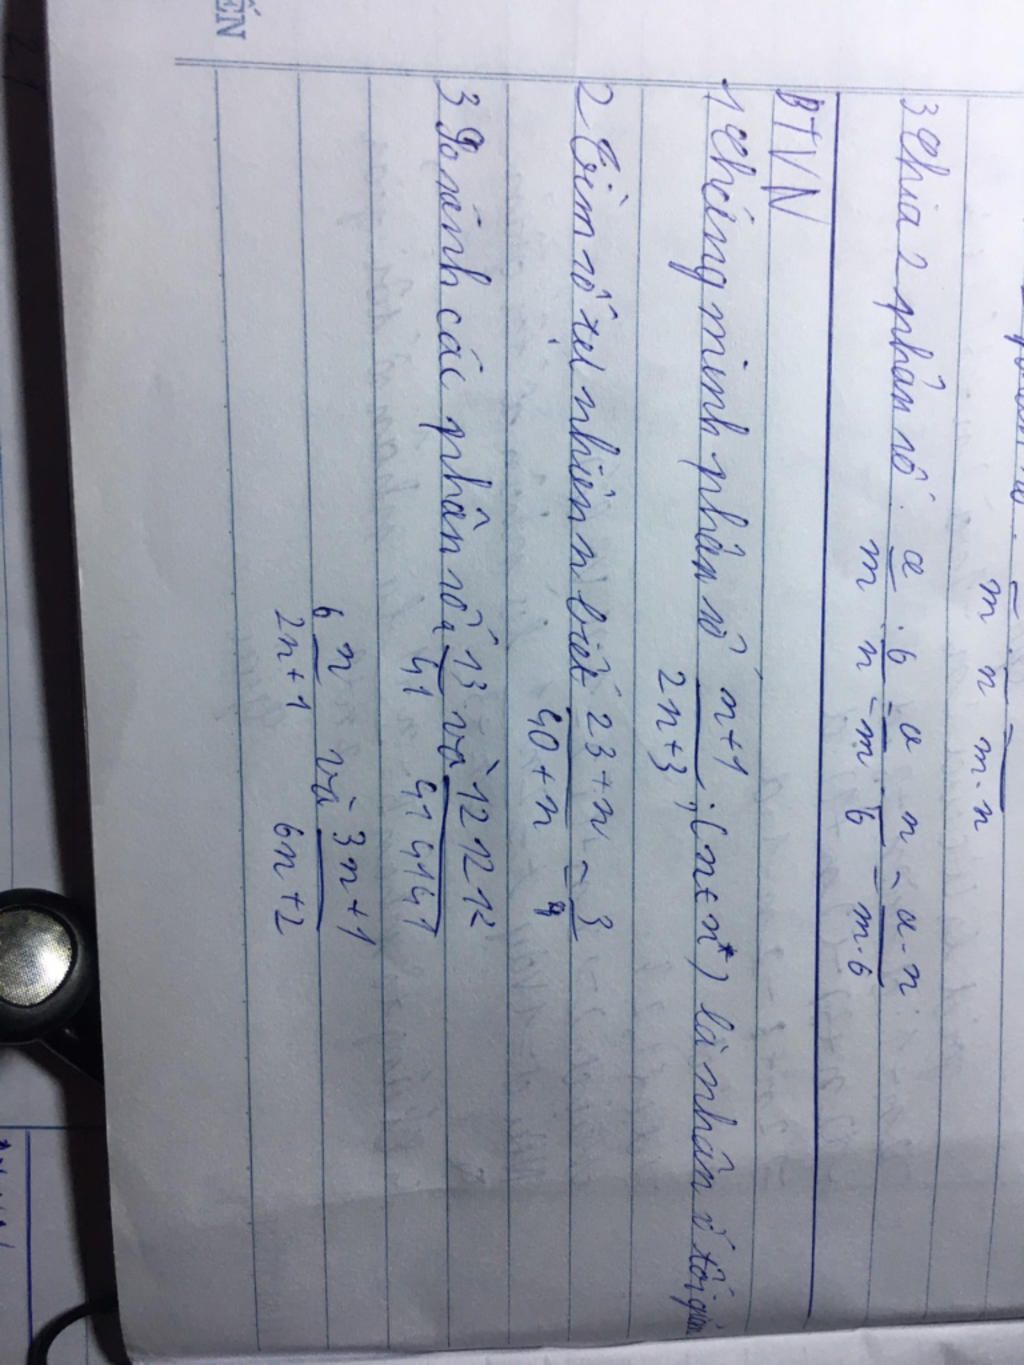 m n m.n
3 Chia 2 phân số: a/m : b/n = a/m . n/b = a.n/m.b
BTVN
1 Chứng minh phân số n+1/2n+3 ; (n ∈ n*) là nhân ố tối giản
2 Tìm số tự nhiên n biết 23+n/40+n = 3/4
3 So sánh các phân số: 13/41 và 121212/414141
b n/2n+1 và 3n+1/6n+2
ẾN